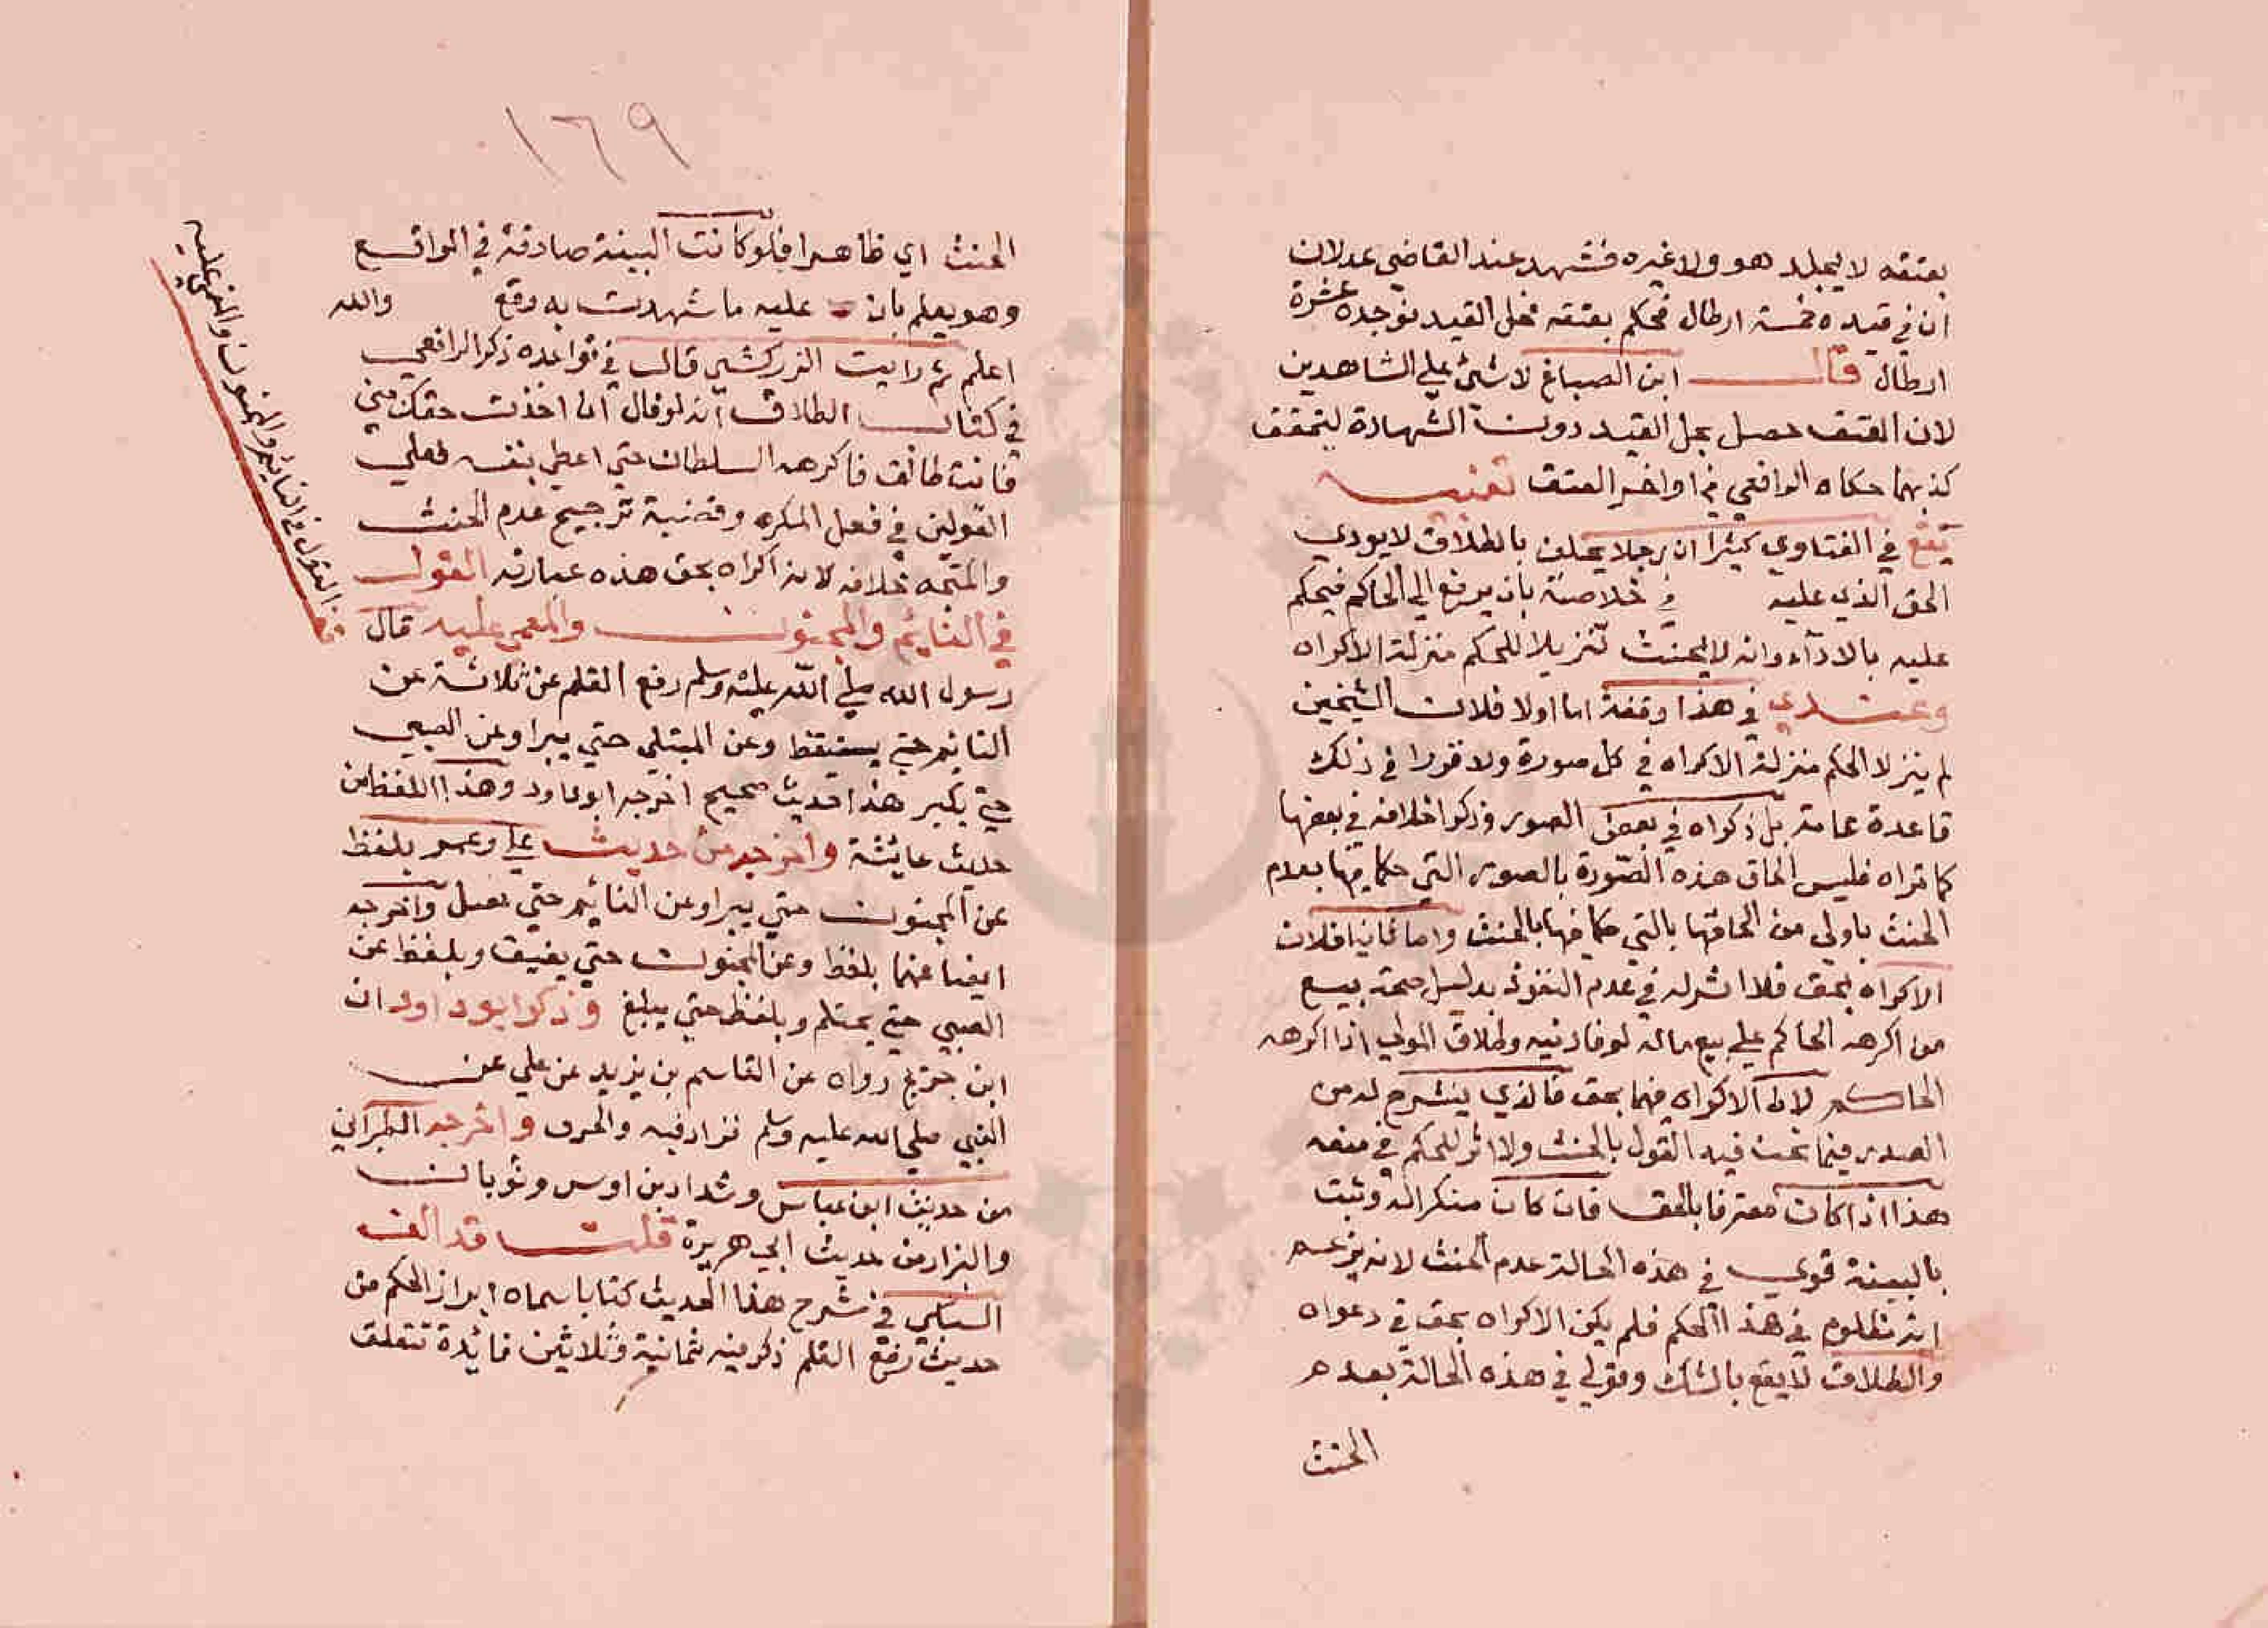 بعتقه لا يحله هو ولا غيره فشهد عند القاضي عدلان
ان في قيده خمسة ارطال فحكم بعتقه فحل القيد فوجده عشرة
ارطال قال ابن الصباغ لا شئ علي الشاهدين
لان العتق حصل بحل القيد دون الشهادة لتحقق
كذبهما حكاه الرافعي في اواخر العتق تنبيه
يقع في الفتاوي كثيرا ان رجلا يحلف بالطلاق لا يودي
الحق الذي عليه خلاصه بان يرفع الي الحاكم فيحكم
عليه بالاداء وانه لا يحنث تنزيلا للحكم منزلة الاكراه
وعندي في هذا وقفة اما اولا فلان الشيخين
لم ينزلا الحكم منزلة الاكراه في كل صورة ولا قررا في ذلك
قاعدة عامة بل ذكراه في بعض الصور وذكرا خلافه في بعضها
كما تراه فليس الحاق هذه الصورة بالصور التي حكما فيها بعدم
الحنث باولي من الحاقها بالتي حكما فيها بالحنث واما ثانيا فلان
الاكراه بحق فلا اثر له في عدم النفوذ بدليل صحة بيع
من اكرهه الحاكم علي بيع ماله لوفا دينه وطلاق المولي اذا اكرهه
الحاكم لان الاكراه فيهما بحق فالذي ينشرح له مني
الصدر فيما نحن فيه القول بالحنث ولا اثر للحكم في منعه
هذا اذا كان معترفا بالحق فان كان منكرا له وثبت
بالبينة قوي في هذه الحالة عدم الحنث لانه يزعم
انه مظلوم في هذا الحكم فلم يكن الاكراه بحق في دعواه
والطلاق لا يقع بالشك وقولي في هذه الحالة بعدم
الحنث
١٦٩
الحنث اي ظاهرا فلو كانت البينة صادقة في الواقع
وهو يعلم بان عليه ما شهدت به وقع والله
اعلم ثم رايت الزركشي قال في قواعده ذكر الرافعي
في كتاب الطلاق انه لو قال ان اخذت حقك مني
فانت طالق فاكرهه السلطان حتي اعطي بنفسه فعلي
القولين في فعل المكره وقضية ترجيح عدم الحنث
والمتجه خلافه لانه اكراه بحق هذه عبارته القول
في النايم والمجنون والمغمي عليه قال
رسول الله صلي الله عليه وسلم رفع القلم عن ثلاثة عن
النايم حتي يستيقظ وعن المبتلي حتي يبرا وعن الصبي
حتي يكبر هذا حديث صحيح اخرجه ابو داود وهذا اللفظ من
حديث عايشة واخرجه من حديث علي وعمر بلفظ
عن المجنون حتي يبرا وعن النائم حتي يعقل واخرجه
ايضا عنهما بلفظ وعن المجنون حتي يفيق وبلفظ عن
الصبي حتي يحتلم وبلفظ حتي يبلغ وذكر ابو داود ان
ابن جريج رواه عن القاسم بن يزيد عن علي عن
النبي صلي الله عليه وسلم فزاد فيه والخرف واخرجه الطبراني
من حديث ابن عباس وشداد بن اوس وثوبان
والبزار من حديث ابي هريرة قلت قد الف
السبكي في شرح هذا الحديث كتابا سماه ابراز الحكم من
حديث رفع القلم ذكر فيه ثمانية وثلاثين فائدة تتعلق
القول في النايم والمجنون والمغمي عليه